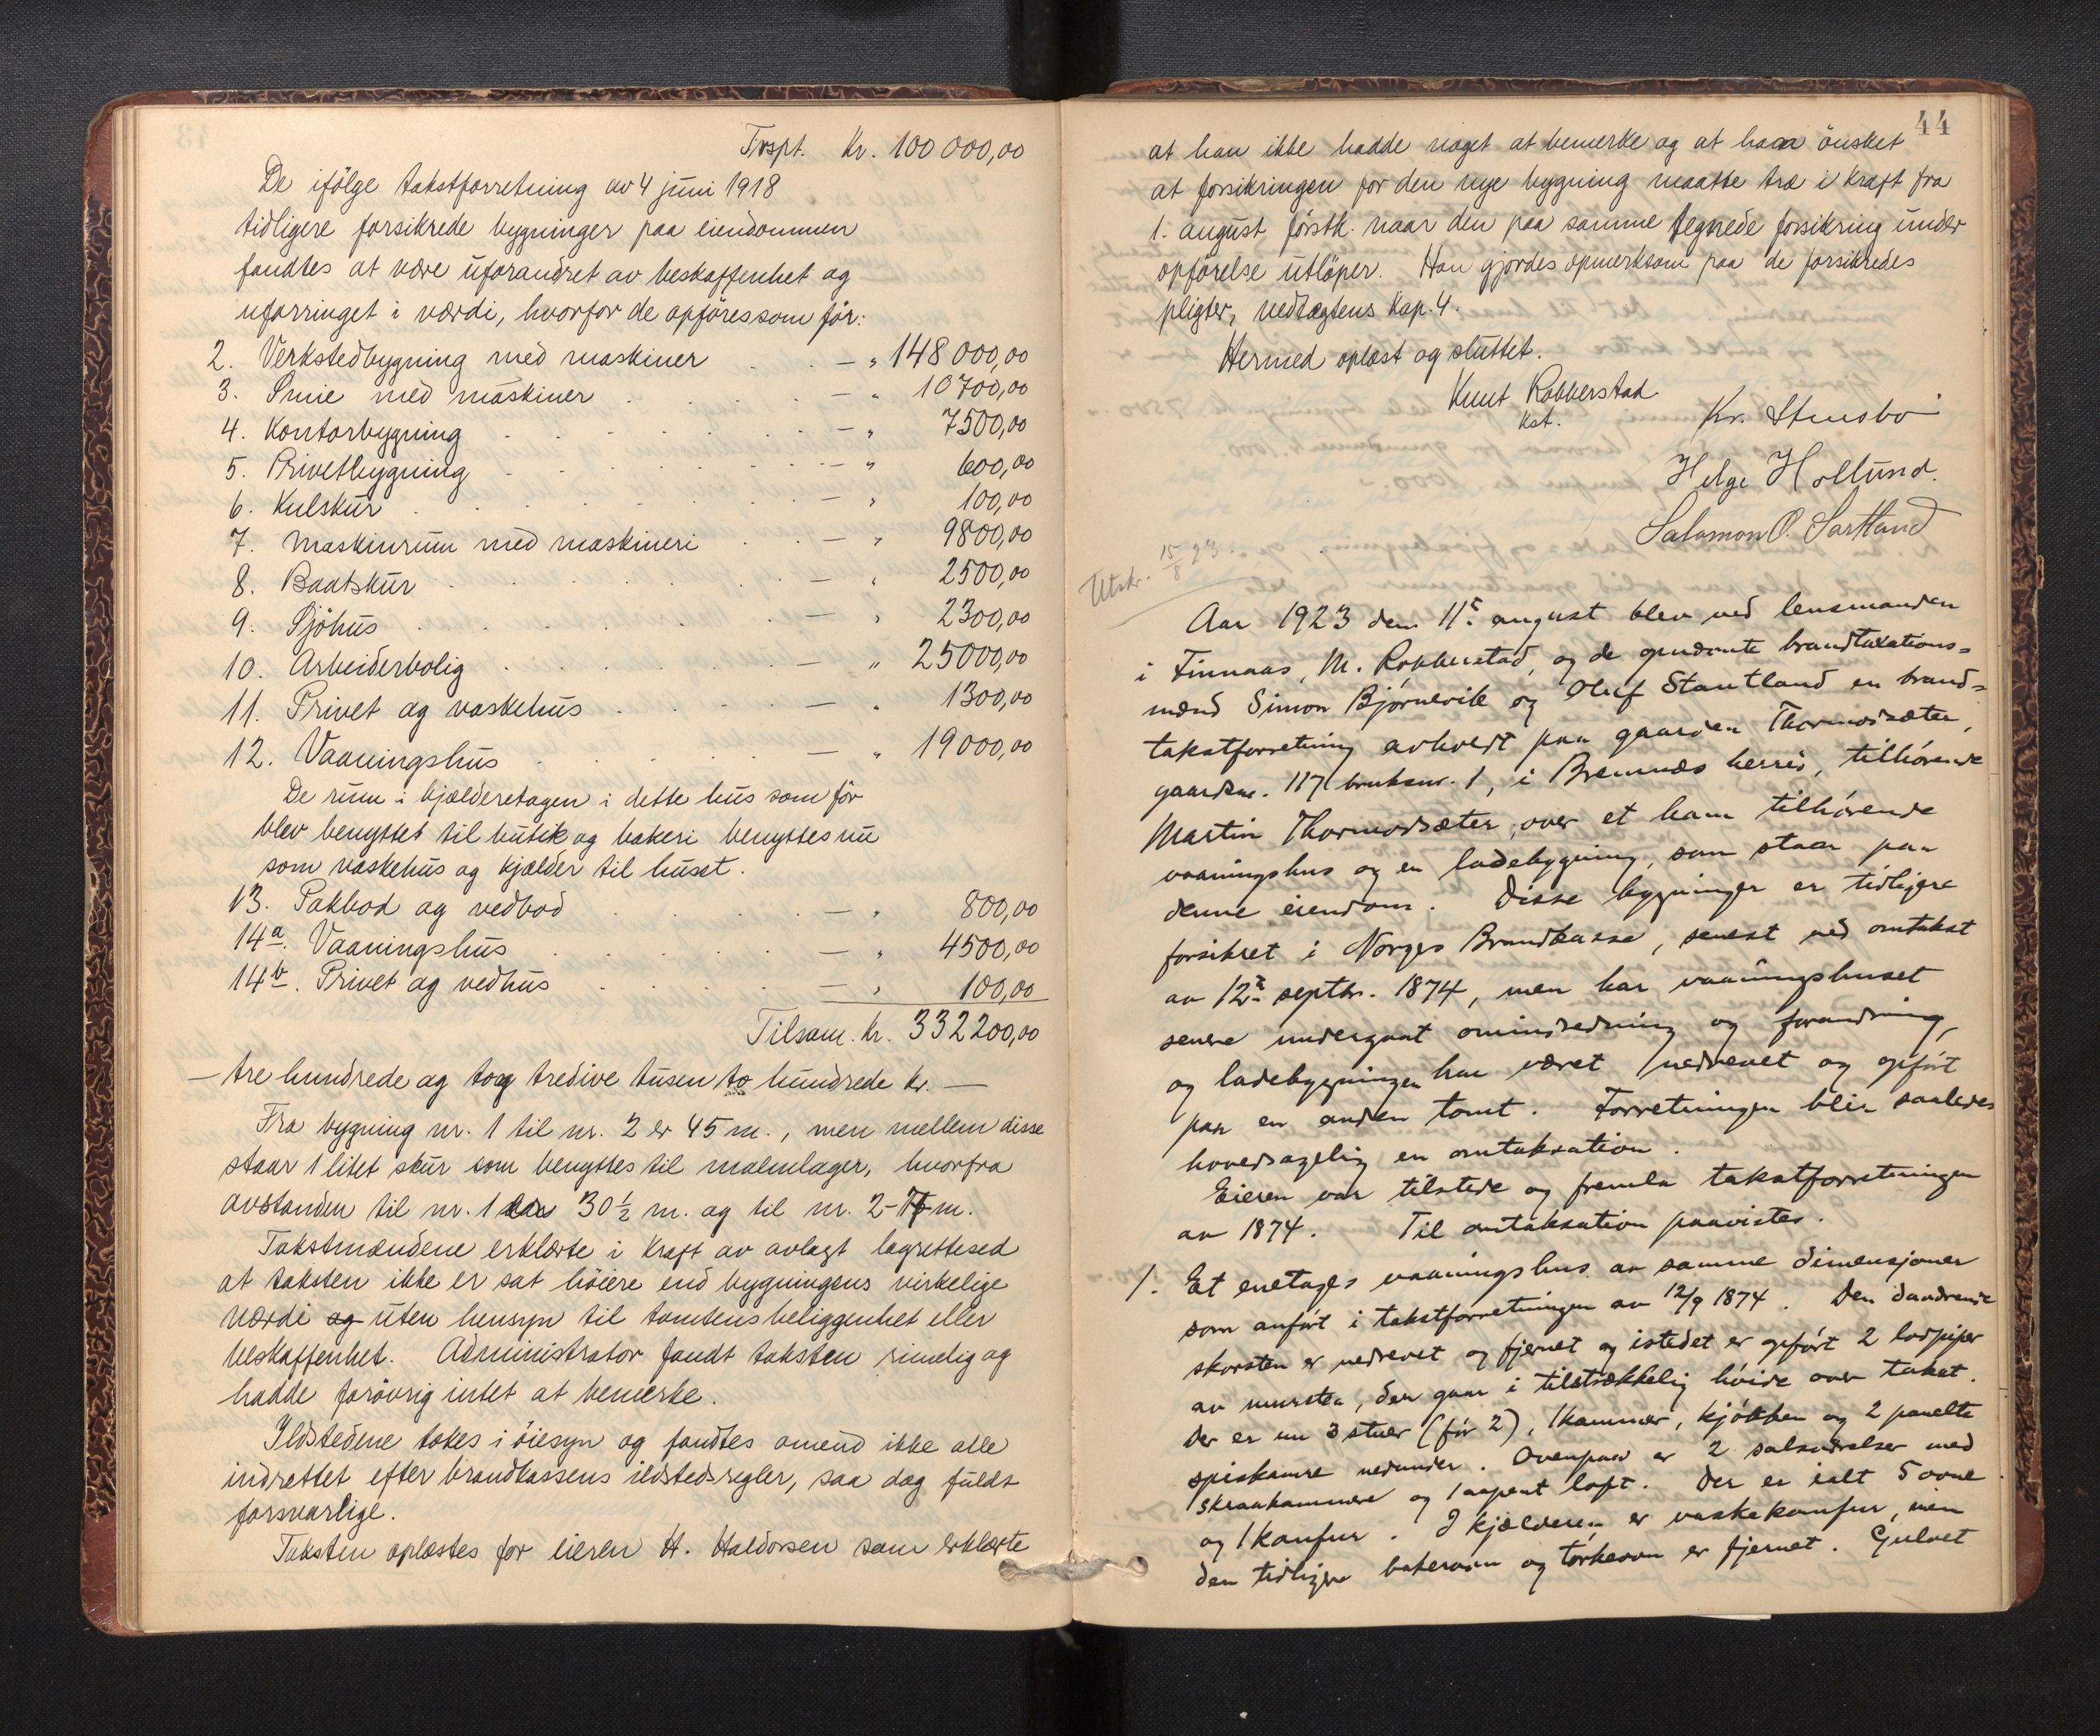 Trspt. Kr. 100 000,00
De ifölge takstforretning av 4 juni 1918
tidligere forsikrede bygninger paa eiendommen
fandtes at være uforandret av beskaffenhet og
uforringet i værdi, hvorfor de opföres som för:
2. Verkstedbygning med maskiner . . — „ 148 000,00
3. Smie med maskiner . . . — „ 10 700,00
4. Kontorbygning . . . . . . . — „ 7500,00
5. Privetbygning . . . . . . — „ 600,00
6. Kulskur . . . . . . . — „ 100,00
7. Maskinrum med maskineri . . — „ 9800,00
8. Baatskur . . . . . . . — „ 2500,00
9. Sjöhus . . . . . . . — „ 2300,00
10. Arbeiderbolig . . . . . — „ 25000,00
11. Privet og vaskehus . . . . — „ 1300,00
12. Vaaningshus . . . . . — „ 19000,00
De rum i kjælderetagen i dette hus som för
blev benyttet til butik og bakeri benyttes nu
som vaskehus og kjælder til huset.
13. Pakbod og vedbod . . . . — „ 800,00
14a. Vaaningshus . . . . . — „ 4500,00
14b. Privet og vedhus . . . . . — „ 100,00
Tilsam. kr. 332200,00
— tre hundrede og tog tredive tusen to hundrede kr. —
Fra bygning nr. 1 til nr. 2 er 45 m., men mellem disse
staar 1 litet skur som benyttes til malmlager, hvorfra
avstanden til nr. 1 30½ m. og til nr. 2 - m.
Takstmændene erklærte i kraft av avlagt lagrettesed
at taksten ikke er sat höiere end bygningens virkelige
værdi og uten hensyn til tomtens beliggenhet eller
beskaffenhet. Administrator fandt taksten rimelig og
hadde forövrig intet at bemerke.
Ildstedene tokes i öiesyn og fandtes omend ikke alle
indrettet efter brandkassens ildstedsregler, saa dog fuldt
forsvarlige.
Taksten oplæstes for eieren H. Haldorsen som erklærte
44
at han ikke hadde noget at bemerke og at han önsket
at forsikringen for den nye bygning maatte træ i kraft fra
1. august förstk. naar den paa samme tegnede forsikring under
opförelse utlöper. Han gjordes opmerksom paa de forsikredes
pligter, vedtægtens kap. 4.
Hermed oplæst og sluttet.
Knut Robberstad
kst.
Kr. Stensbö
Helge Hollund.
Salomon O. Sortland
Utskr. 15/8 23.
Aar 1923 den 11te august blev ved lensmanden
i Finnaas, M. Robberstad, og de opnævnte brandtaxations-
mænd Simon Bjørnevik og Oluf Stautland en brand-
takstforretning avholdt paa gaarden Thormodsæter,
gaardsnr. 117 bruksnr. 1, i Bremnes herred, tilhørende
Martin Thormodsæter, over et ham tilhørende
vaaningshus og en ladebygning, som staar paa
denne eiendom. Disse bygninger er tidligere
forsikret i Norges Brandkasse, senest ved omtakst
av 12te septbr. 1874, men har vaaningshuset
senere undergaat omindredning og forandring,
og ladebygningen har været nedrevet og opført
paa en anden tomt. Forretningen blir saaledes
hovedsagelig en omtaksation.
Eieren var tilstede og fremla takstforretningen
av 1874. Til omtaksation paavistes.
1. Et enetages vaaningshus av samme dimensjoner
som anført i takstforretningen av 12/9 1874. Den daværende
skorsten er nedrevet og fjernet og istedet er opført 2 lodpiper
av mursten, der gaar i tilstrækkelig høide over taket.
Der er nu 3 stuer (før 2), 1 kammer, kjøkken og 2 panelte
spiskamre nedunder. Ovenpaa er 2 salsværelser med
skraakammere og 1 aapent loft. Der er ialt 5 ovne
og 1 komfur. I kjælderen er vaskekomfur, men
den tidligere bakerovn og tørkeovn er fjernet. Gulvet